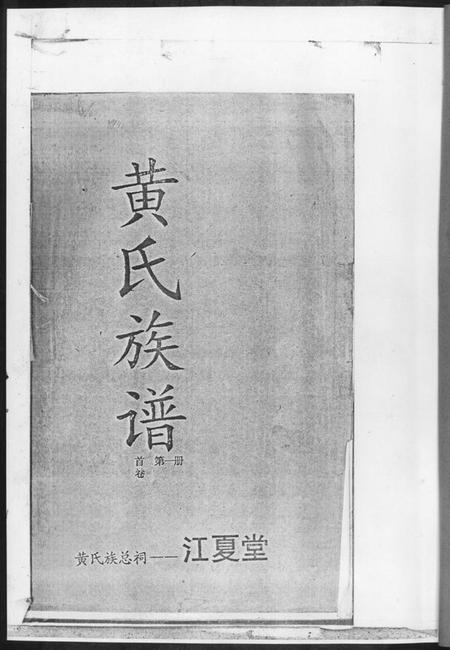 黄氏族谱
首卷 第一册
黄氏族总祠——江夏堂